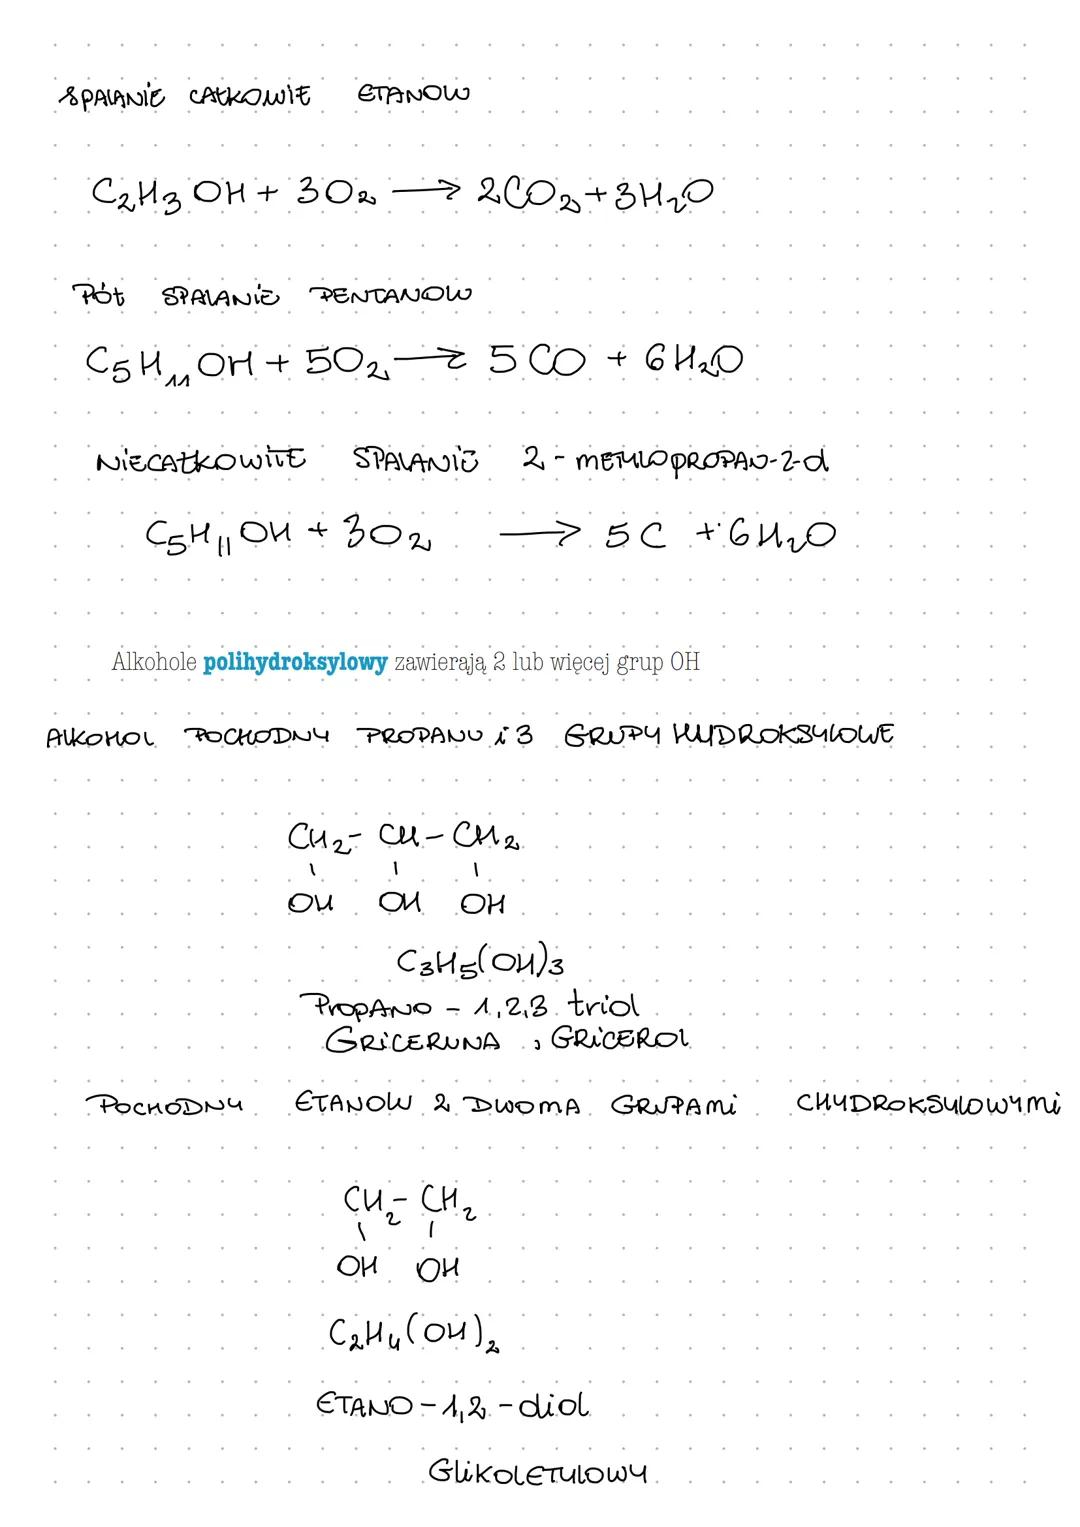 SPALANIE CAŁKOWITE ETANOLU
C₂H₃OH + 3O₂ → 2CO₂ + 3H₂O
PÓŁ SPALANIE PENTANOLU
C₅H₁₁OH + 5O₂ → 5CO + 6H₂O
NIECAŁKOWITE SPALANIE 2-METYLOPROPAN-2-ol
C₅H₁₁OH + 3O₂ → 5C + 6H₂O
Alkohole polihydroksylowy zawierają 2 lub więcej grup OH
ALKOHOL POCHODNY PROPANU i 3 GRUPY HYDROKSYLOWE
CH₂-CH-CH₂
OH OH OH
C₃H₅(OH)₃
PROPANO - 1,2,3 triol
GRICERYNA, GRICEROL
POCHODNY ETANOLU Z DWOMA GRUPAMI CHYDROKSYLOWYMI
CH₂-CH₂
OH OH
C₂H₄(OH)₂
ETANO-1,2-diol
GLIKOLETYLOWY